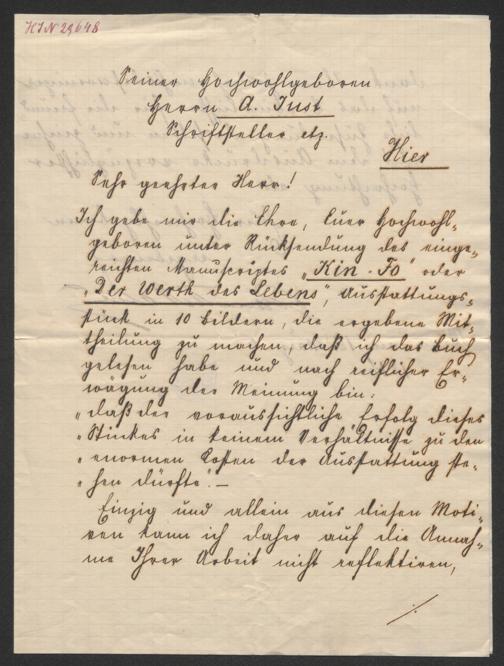 HIN 29648
Seiner Hochwohlgeboren
Herrn A. Just
Schriftsteller etz.
Hier
Sehr geehrter Herr!
Ich gebe mir die Ehre, Euer Hochwohl-
geboren unter Rücksendung des einge-
reichten Manuscriptes „Kin-Fo" oder
„Der Werth des Lebens", Ausstattungs-
stück in 10 Bildern, die ergebene Mit-
theilung zu machen, daß ich das Buch
gelesen habe und nach reiflicher Er-
wägung der Meinung bin:
„daß der voraussichtliche Erfolg dieses
„Stückes in keinem Verhältnisse zu den
„enormen Kosten der Ausstattung ste-
„hen dürfte". —
Einzig und allein aus diesen Moti-
ven kann ich daher auf die Annah-
me Ihrer Arbeit nicht reflektiren,